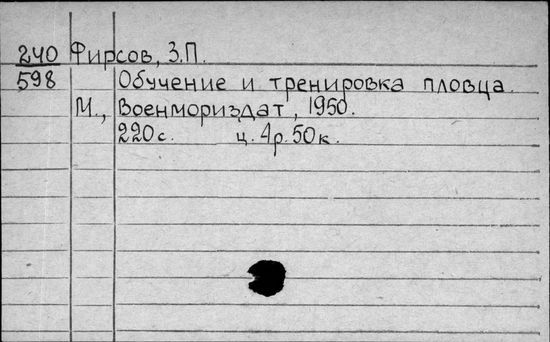 240 Фирсов, З.П.
598 Обучение и тренировка пловца.
М., Военмориздат, 1950.
220с. ц. 4р.50к.